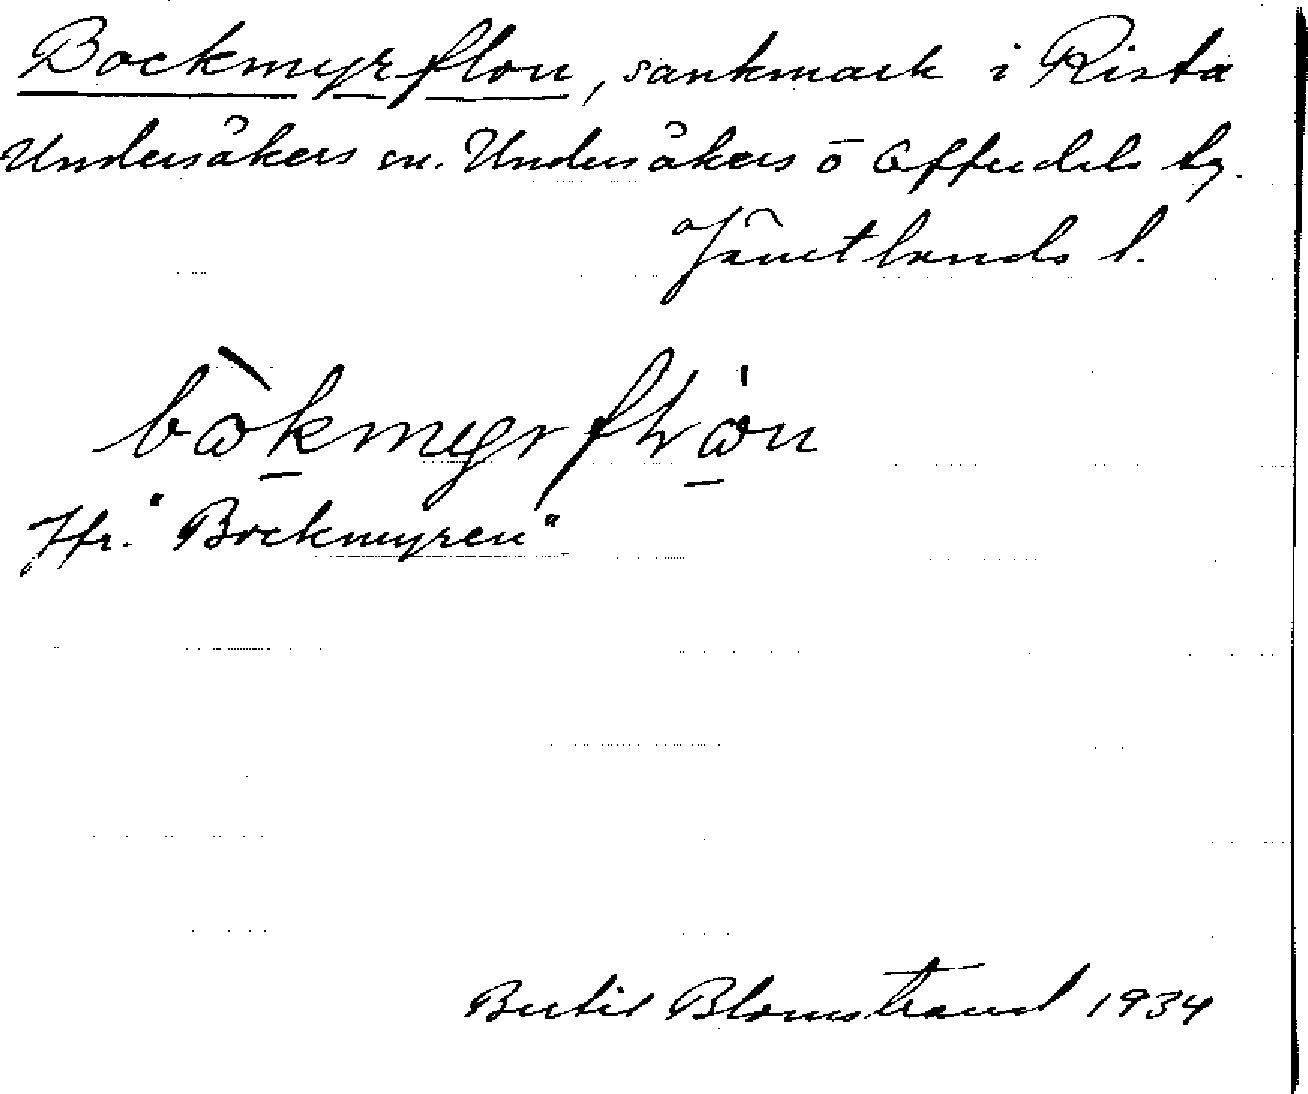 Bockmyrflon, sankmark i Rista
Undersåkers sn. Undersåkers o Offerdals tg.
Jämtlands l.
Jfr. "Bockmyren"
Bertil Blomstrand 1934